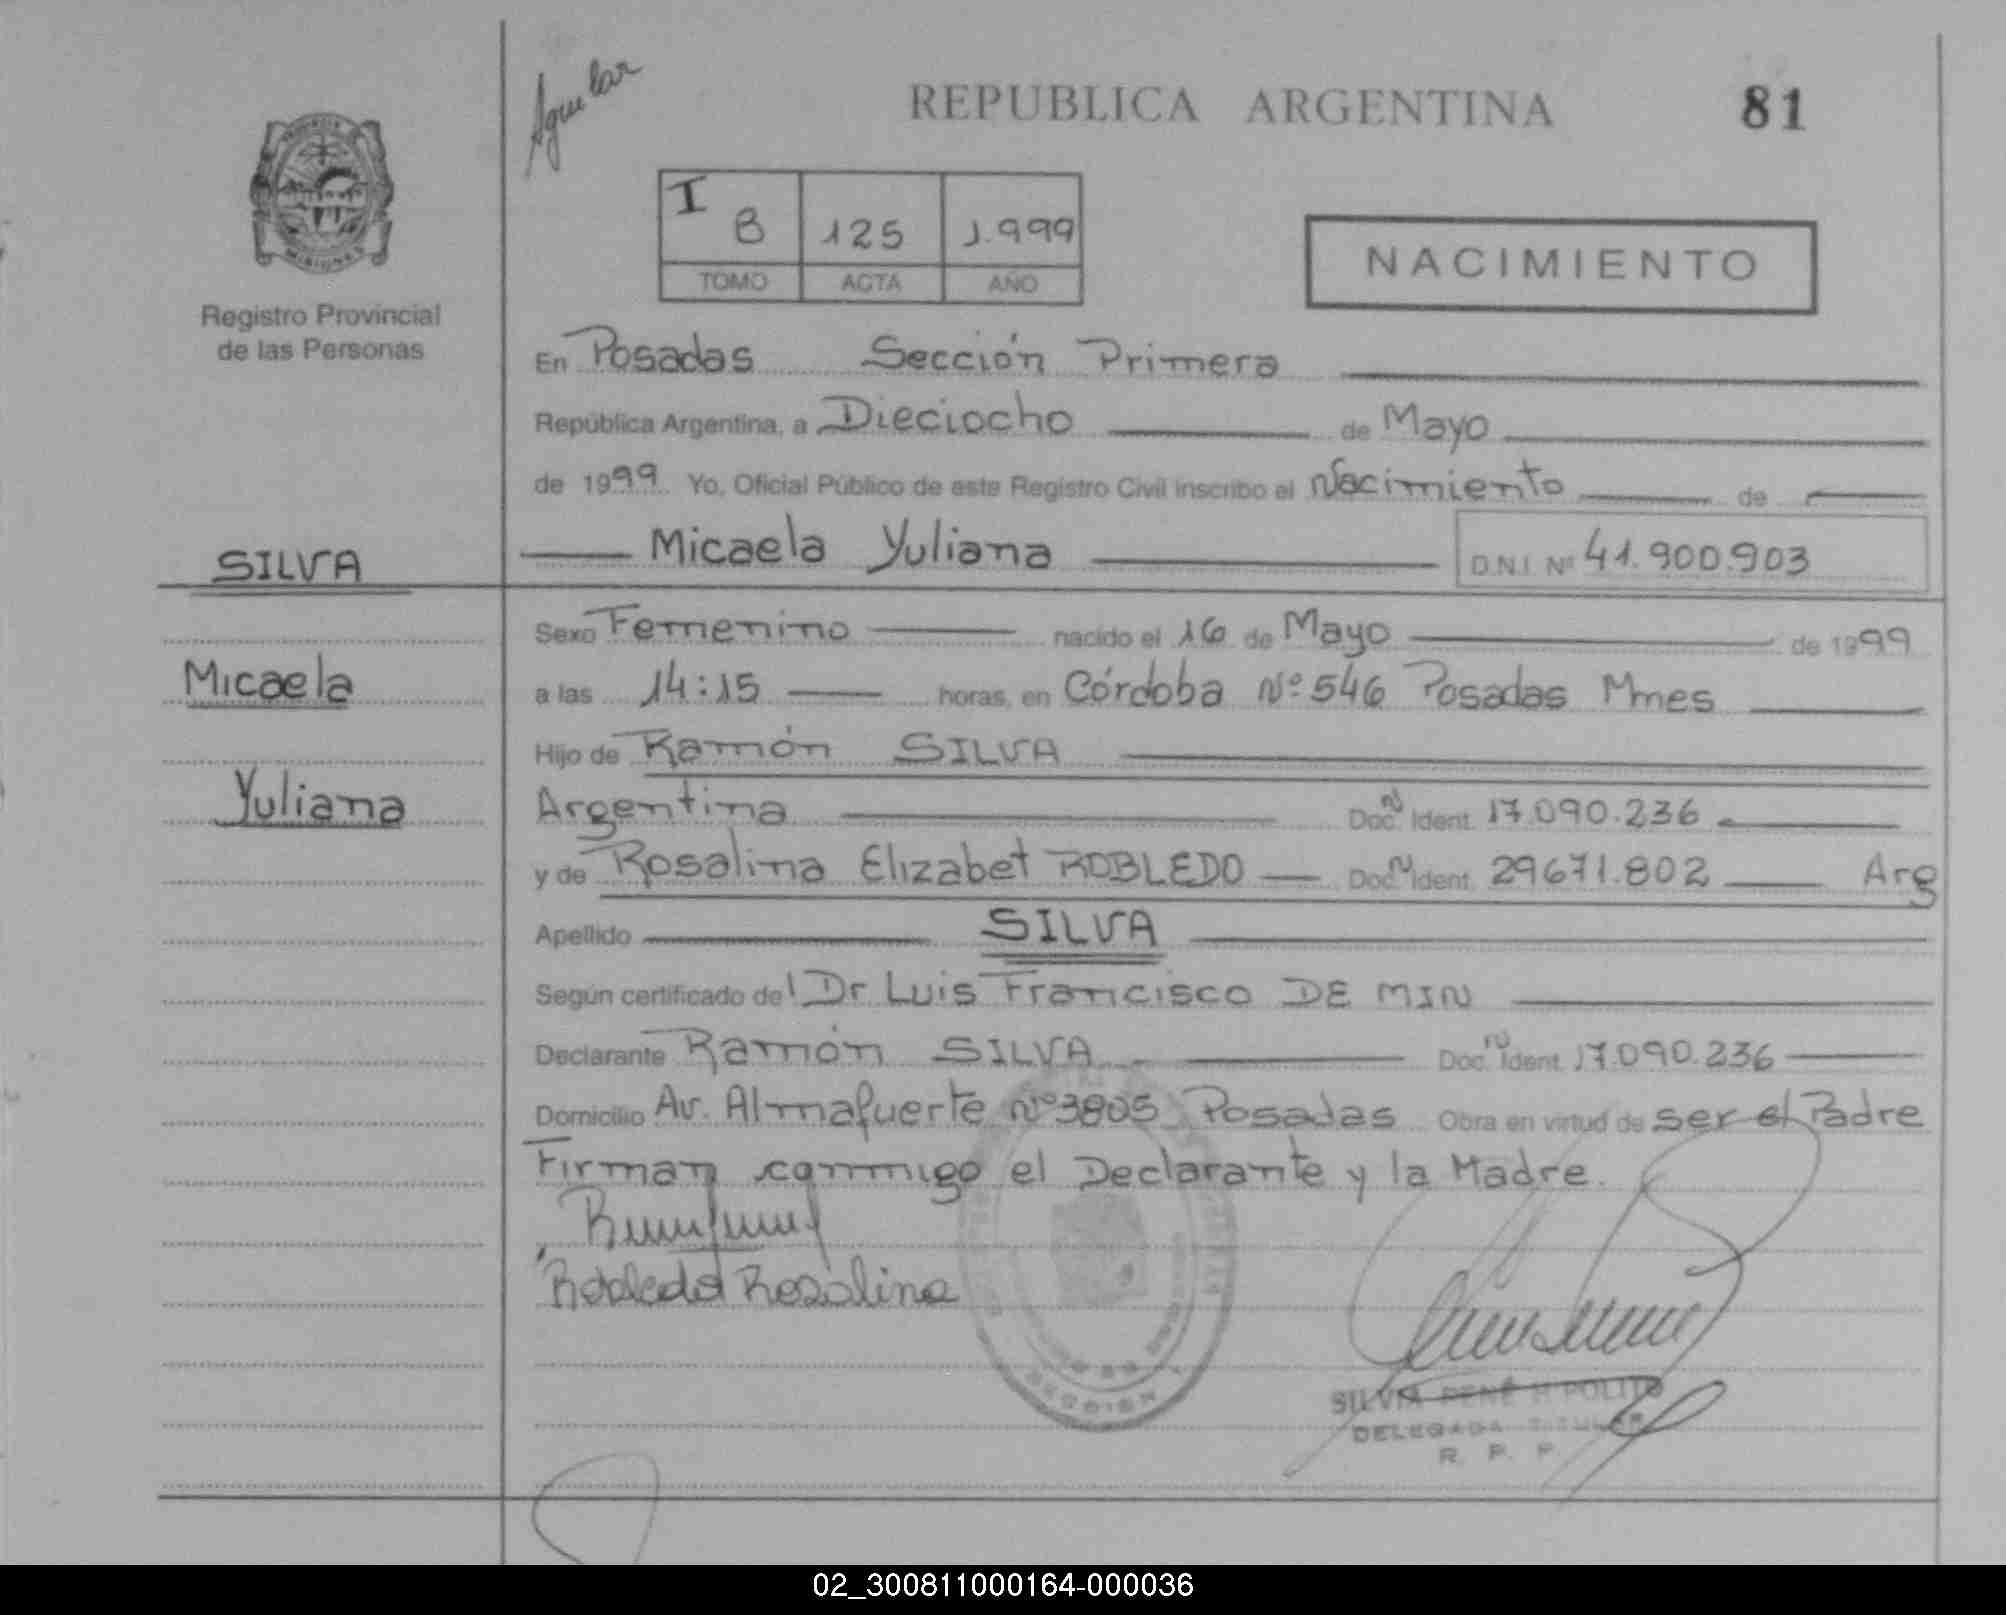 Aguilar
REPUBLICA ARGENTINA 81
PROVINCIA
MISIONES
Registro Provincial
de las Personas
I
8 125 1.999
TOMO ACTA AÑO
NACIMIENTO
En Posadas Sección Primera
República Argentina, a Dieciocho de Mayo
de 1999 Yo, Oficial Público de este Registro Civil inscribo el Nacimiento de
Micaela Yuliana D.N.I. Nº 41.900.903
SILVA
Micaela
Yuliana
Sexo Femenino nacido el 16 de Mayo de 1999
a las 14:15 horas, en Córdoba Nº 546 Posadas Mnes
Hijo de Ramón SILVA
Argentina Doc. N Ident. 17.090.236
y de Rosalina Elizabet ROBLEDO Doc. N Ident. 29671.802 Arg
Apellido SILVA
Según certificado del Dr Luis Francisco DE MIN
Declarante Ramón SILVA Doc. N Ident. 17.090.236
Domicilio Av. Almafuerte Nº 3805 Posadas Obra en virtud de ser el Padre
Firman conmigo el Declarante y la Madre.
Robledo Rosalina
SECCION 1
SILVIA RENÉ H POLITO
DELEGADA TITULAR
R. P. P.
02_300811000164-000036